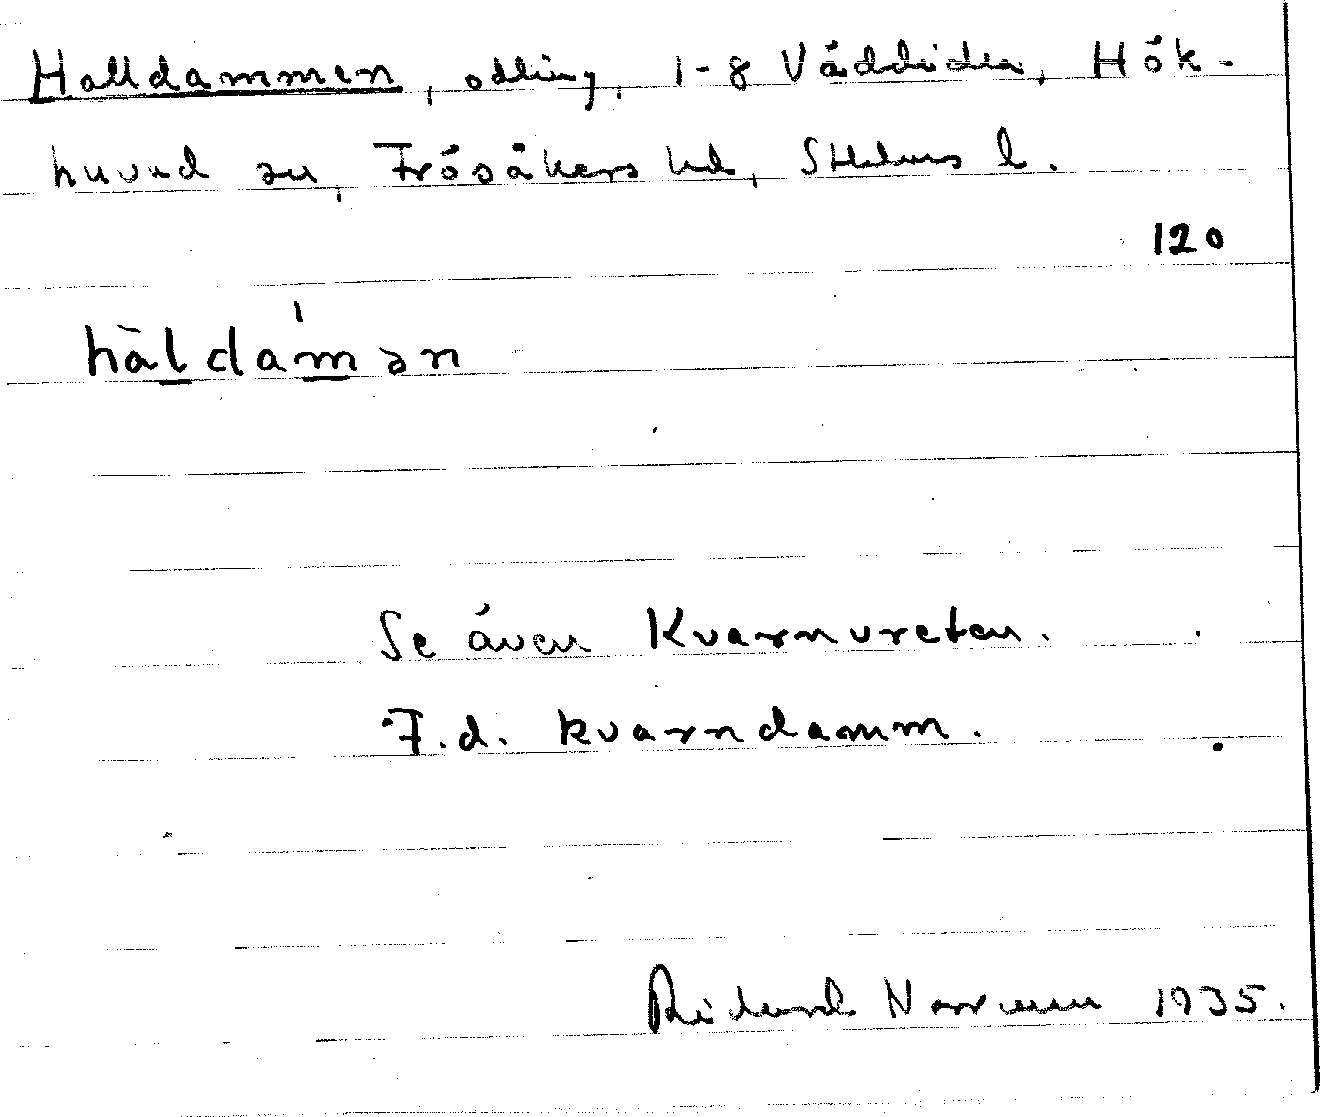 Halldammen, odling, 1-8 Väddidea, Hök-
huvud sn, Frösåkers hd, Sthlms l.
120
häldam̍ən
Se även Kvarnvreten.
F.d. kvarndamm.
Rickard Norrman 1935.